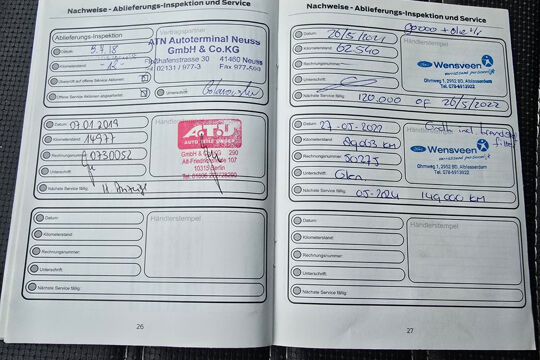 Nachweise - Ablieferungs-Inspektion und Service
Ablieferungs-Inspektion
Datum: 5.7.18
Kilometerstand:
12
Überprüft auf offene Service Aktionen:
Offene Service Aktionen abgearbeitet:
Vertragspartner
ATN Autoterminal Neuss
GmbH & Co.KG
Floßhafenstrasse 30 41460 Neuss
Tel. 02131 / 977-3 Fax 977-593
Unterschrift:
Datum: 07.01.2019
Kilometerstand: 14977
Rechnungsnummer: 0730052
Unterschrift:
Nächste Service fällig:
Händlerstempel
A.T.U
AUTO TEILE UNGER
GmbH & 290
Alt-Friedrichstraße 107
10315 Berlin
Datum:
Kilometerstand:
Rechnungsnummer:
Unterschrift:
Nächste Service fällig:
Händlerstempel
26
Nachweise - Ablieferungs-Inspektion und Service
Datum: 26/5/2021
Kilometerstand: 62.540
Rechnungsnummer:
Unterschrift:
Nächste Service fällig: 120.000 OF 26/5/2022
Händlerstempel
Wensveen
verrassend persoonlijk
Ohmweg 1, 2952 BD, Alblasserdam
Tel. 078-6913922
Datum: 27-05-2022
Kilometerstand: KM
Rechnungsnummer: 50275
Unterschrift:
Nächste Service fällig: 05-2024 149,000 KM
Groot incl
filter
Wensveen
verrassend persoonlijk
Ohmweg 1, 2952 BD, Alblasserdam
Tel. 078-6913922
Datum:
Kilometerstand:
Rechnungsnummer:
Unterschrift:
Nächste Service fällig:
Händlerstempel
27